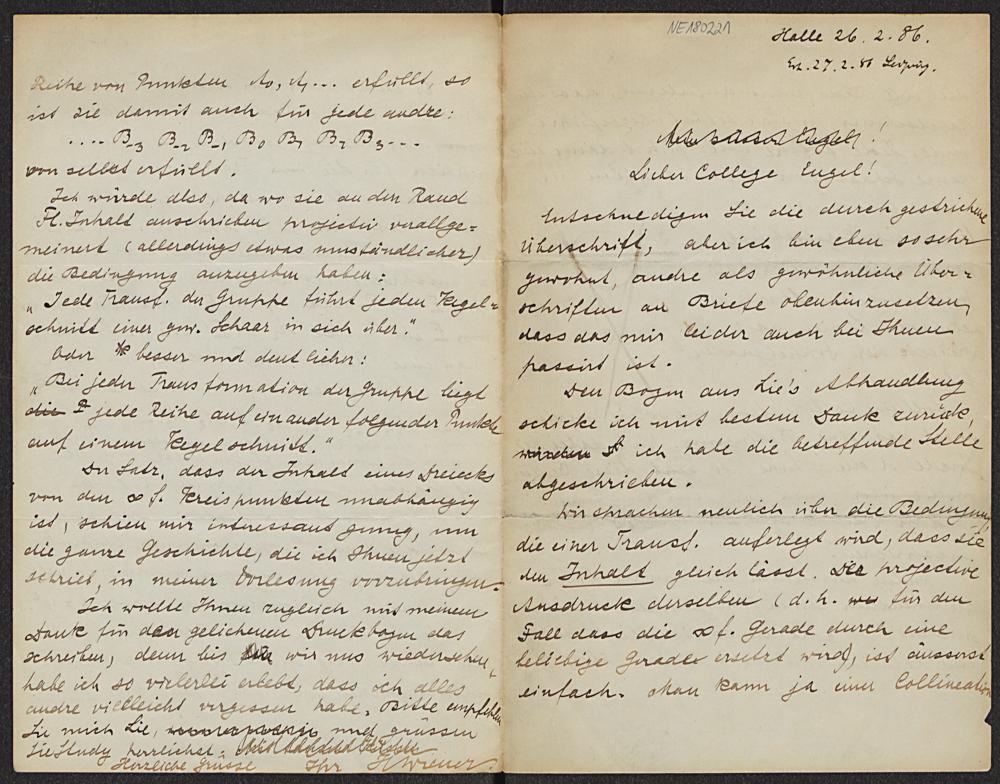 Reihe von Punkten A₀, A₁... erfüllt, so
ist sie damit auch für jede andre:
.... B₋₃ B₋₂ B₋₁ B₀ B₁ B₂ B₃...
von selbst erfüllt.
Ich würde also, da wo sie an den Rand
Fl. Inhalt anschrieben projectiv verallge=
meinert (allerdings etwas umständlicher)
die Bedingung anzugeben haben:
„Jede Transf. der Gruppe führt jeden Kegel=
schnitt einer gew. Schaar in sich über."
Oder besser und deutlicher:
„Bei jeder Transformation der Gruppe liegt
die jede Reihe auf einander folgender Punkte
auf einem Kegelschnitt."
Der Satz, dass der Inhalt eines Dreiecks
von den ∞ f. Kreispunkten unabhängig
ist, schien mir interessant genug, um
die ganze Geschichte, die ich Ihnen jetzt
schrieb, in meiner Vorlesung vorzubringen.
Ich wollte Ihnen zugleich mit meinem
Dank für den geliehenen Druckbogen das
schreiben, denn bis wir uns wiedersehen,
habe ich so vielerlei erlebt, dass ich alles
andre vielleicht vergessen habe. Bitte empfehlen
Sie mich Lie, und grüssen
Sie Study herzlichst.
Herzliche Grüsse Ihr HWiener.
NE180221
Halle 26. 2. 86.
Er. 27. 2. 86 Leipzig.
Lieber College Engel!
Entschuedigen Sie die durchgestrichene
Überschrift, aber ich bin eben so sehr
gewohnt, andre als gewöhnliche Über=
schriften an Briefe obenhinzusetzen,
dass das mir leider auch bei Ihnen
passirt ist.
Den Bogen aus Lie's Abhandlung
schicke ich mit bestem Dank zurück,
ich habe die betreffende Stelle
abgeschrieben.
Wir sprachen neulich über die Bedingung,
die einer Transf. auferlegt wird, dass sie
den Inhalt gleich lässt. Der projective
Ausdruck derselben (d. h. für den
Fall dass die ∞ f. Gerade durch eine
beliebige Gerade ersetzt wird), ist äusserst
einfach. Man kann ja einer Collineation